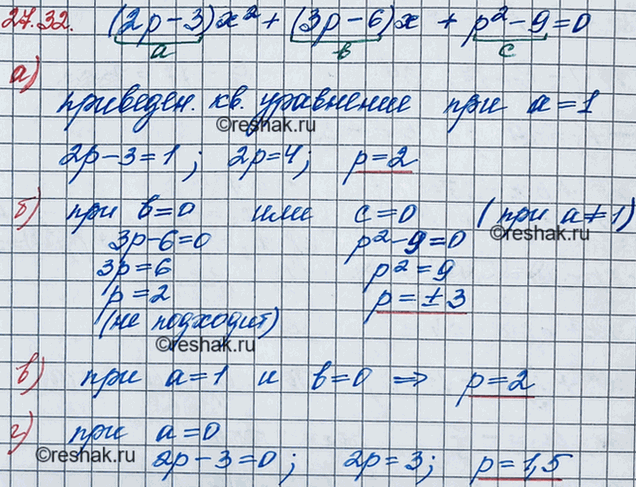 27.32. (2p-3)x² + (3p-6)x + p²-9=0
a b c
а)
приведен. кв. уравнение при a=1
©reshak.ru
2p-3=1; 2p=4; p=2
б) при b=0 или c=0 (при a≠1)
©reshak.ru
3p-6=0 p²-9=0
3p=6 p²=9
p=2 p=±3
(не подходит)
©reshak.ru
в) при a=1 и b=0 ⇒ p=2
г) при a=0
©reshak.ru
2p-3=0; 2p=3; p=1,5